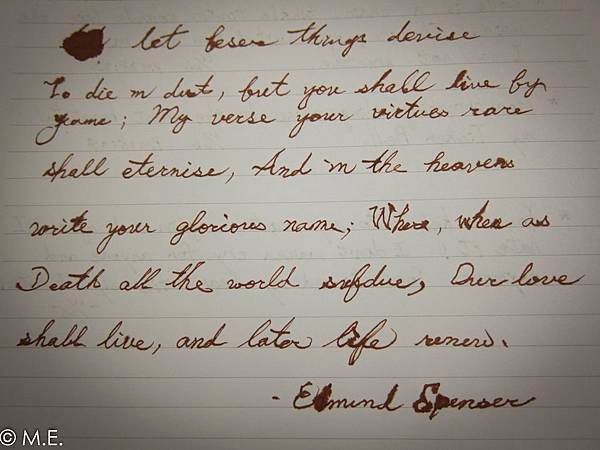 let baser things devise
To die in dust, but you shall live by
fame; My verse your virtues rare
shall eternise, And in the heavens
write your glorious name; Where, when as
Death all the world subdue, Our love
shall live, and later life renew.
- Edmund Spenser
© M.E.